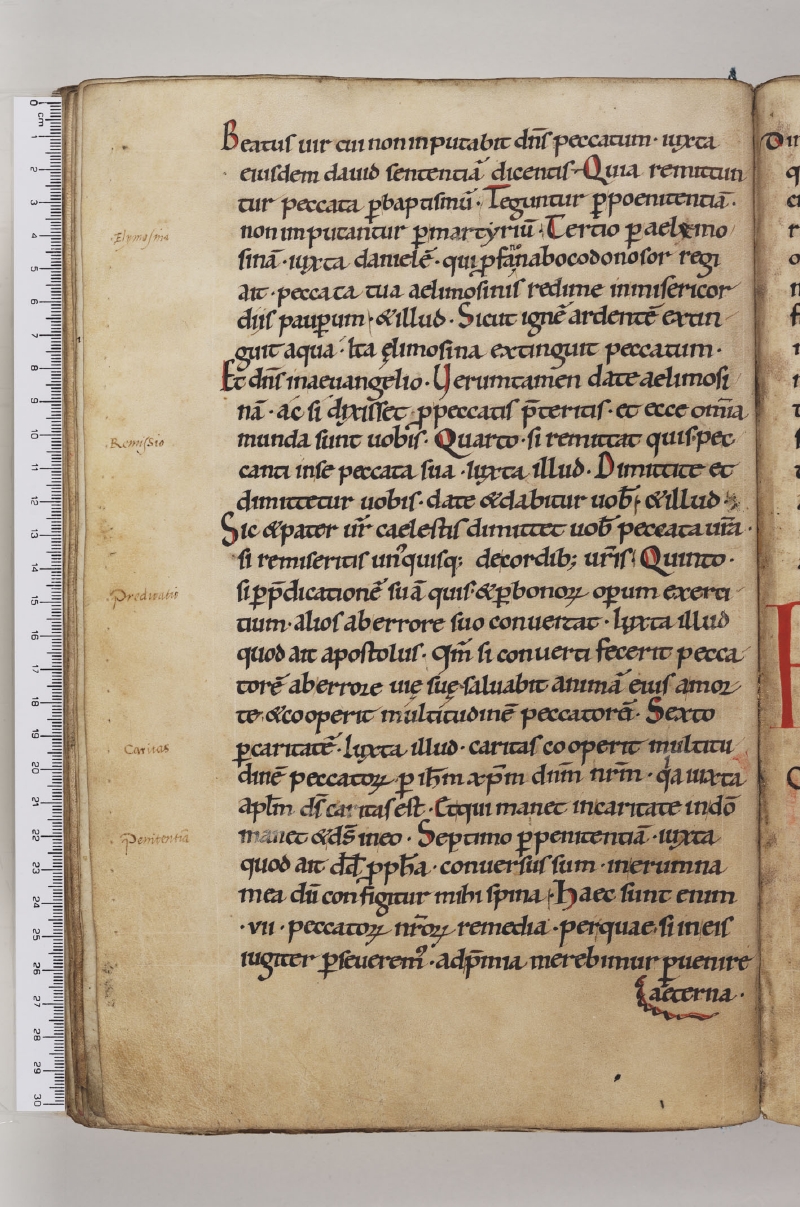 Beatus uir cui non inputabit dn̄s peccatum · iuxta
eiusdem dauid sententiā dicentis · Quia remittun
Elymosina
tur peccata ꝑ baptismū · Teguntur ꝑ poenitentiā ·
non imputantur ꝑ martyriū · Tertio ꝑ aelemo
sinā · iuxta danielē · qui ꝓfans nabocodonosor regi
ait · peccata tua aelimosinis redime in misericor
diis pauꝑum · & illud · Sicut ignē ardentē extin
guit aqua · Ita ęlimosina extinguit peccatum ·
Et dn̄s in aeuangelio · Uerumtamen date aelimosi
nā · ac si dixisset ꝓ peccatis p̄teritis · et ecce omīa
Remissio
munda sunt uobis · Quarto · si remittat quis pec
canti in se peccata sua · Iuxta illud · Dimittite et
dimittetur uobis · date & dabitur uob̄ · & illud ·
Sic & pater ur̄ caelestis dimittet uob̄ peccata ur̄a ·
si remiseritis un'quisq; de cordib; ur̄is · Quinto ·
Predicatio
si ꝑ p̄dicationē suā quis & ꝑ bonoꝝ oꝑum exerci
tium · alios ab errore suo conuertat · Iuxta illud
quod ait apostolus · Qm̄ si conuerti fecerit pecca
torē ab errore uię suę · saluabit animā eius a mor
te · & cooperit multitudinē peccatorū · Sexto
Caritas
ꝑ caritatē · Iuxta illud · caritas cooperit multitu
dinē peccatoꝝ ꝑ ih̄m xp̄m dn̄m nr̄m · q̇a iuxta
apl̄m ds̄ caritas est · Et qui manet in caritate in dō
Penitentia
manet & ds̄ in eo · Septimo ꝑ penitentiā · iuxta
quod ait dd̄ ꝓph̄a · conuersus sum · in erumna
mea dū configitur mihi spina · Haec sunt enim
· vii · peccatoꝝ nr̄oꝝ remedia · per quae si in eis
iugiter ꝑseuerem' · ad p̄mia merebimur ꝑuenire
aeterna ·